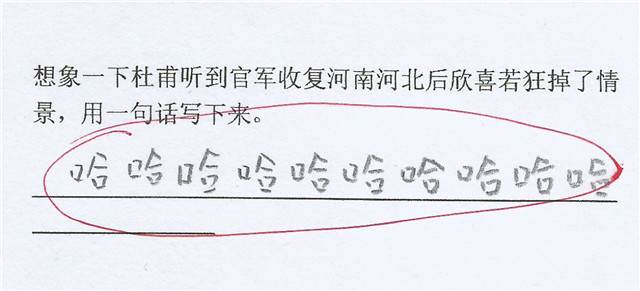 想象一下杜甫听到官军收复河南河北后欣喜若狂掉了情
景，用一句话写下来。
哈哈哈哈哈哈哈哈哈哈